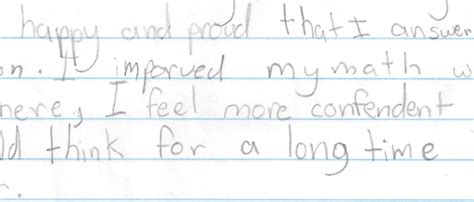 happy and proud that I answer
on. It imporved my math w
here, I feel more confendent
ld think for a long time
r.